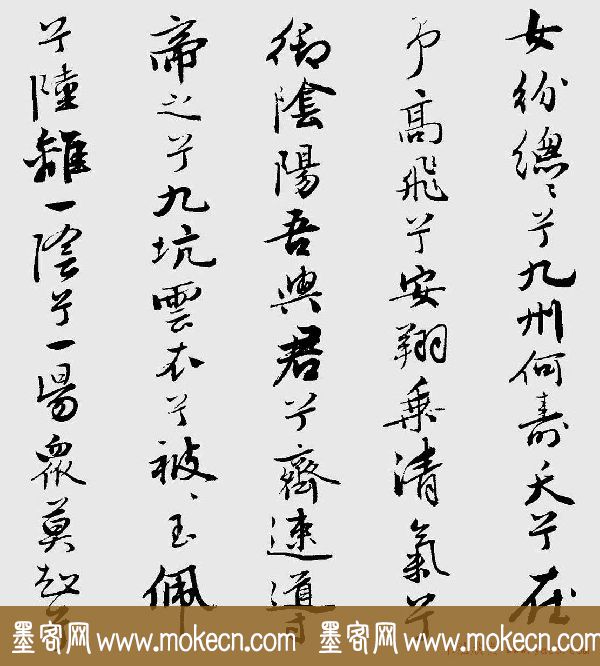 女紛總〻兮九州何壽夭兮在
予高飛兮安翔乘清氣兮
御陰陽吾與君兮齊速導
帝之兮九坑雲衣兮被〻玉佩
兮陸離一陰兮一陽眾莫知兮
墨客网 www.mokecn.com 墨客网 www.mokecn.com